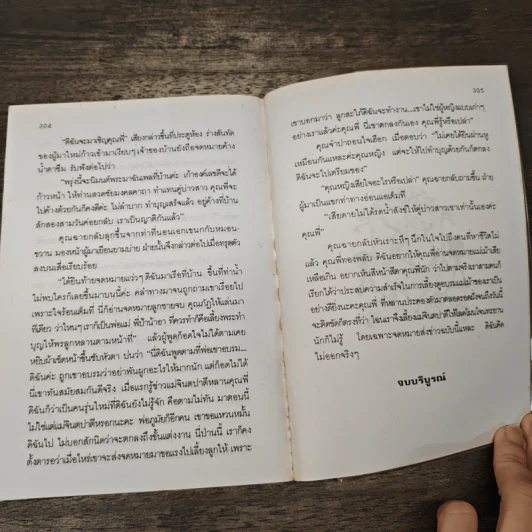 304
"ดิฉันจะมาเชิญคุณพี่" เสียงกล่าวขึ้นที่ประตูห้อง ร่างสันทัด
ของผู้มาใหม่ก้าวเข้ามาเงียบๆ เจ้าของบ้านยังถือจดหมายค้าง
น้ำตาซึม รับฟังต่อไปว่า
"พรุ่งนี้จะนิมนต์พระมาฉันเพลที่บ้านค่ะ เก้าองค์เลขดีจะได้
ก้าวหน้า ให้ท่านสวดชัยมงคลคาถา ทำแทนคู่บ่าวสาว คุณพี่จะ
ไปค้างด้วยกันก็คงดีค่ะ ไม่ลำบาก ทำบุญเสร็จแล้ว อยู่ค้างที่บ้าน
สักสองสามวันค่อยกลับ เราเป็นญาติกันแล้ว"
คุณฉายกลับลุกขึ้นจากท่าที่นอนเอกเขนกกับหมอน-
ขวาน มองหน้าผู้มาเยือนยามบ่าย ฝ่ายนั้นจึงกล่าวต่อไปเมื่อทรุดตัว
ลงบนเสื่อเรียบร้อย
"ได้ยินท้ายจดหมายแว่วๆ ดิฉันมาเรือที่บ้าน ขึ้นที่ท่าน้ำ
ไม่พบใครก็เลยขึ้นมาบนนี้ค่ะ คล่ำทางมาจนถูกถามเขาเรื่อยไป
เพราะใจร้อนเต็มที่ นี่ก็อ่านจดหมายลูกชายจบ คุณภัฎให้แล่นมา
ทีเดียว ว่าไหนๆ เราก็เป็นพ่อแม่ พี่ป้าน้าอา ที่ควรทำก็คือเลี้ยงพระทำ
บุญให้พรลูกหลานตามหน้าที่" แล้วผู้พูดก็อดใจไม่ได้ตามเคย
หยิบผ้าเช็ดหน้าขึ้นซับหัวตา บ่นว่า "นี่ดิฉันพูดตามที่พ่อเขาอบรม...
ดิฉันค่ะ ถูกเขาอบรมว่าอย่าพันผูกอะไรให้มากนัก แต่ก็อดไม่ได้
นี่เขาทันสมัยสมกันดีจริง เมื่อแรกรู้ข่าวแม่จินตปาตีหลานคุณพี่
ดิฉันก็ว่าเป็นคนรุ่นใหม่ที่ดิฉันยังไม่รู้จัก คือตามไม่ทัน มาตอนนี้
ไม่ใช่แต่แม่จินตปาตีหรอกนะคะ พ่อภูมิยก็อีกคน เขาขอแหวนหมั้น
ดิฉันไป ไม่บอกสักนิดว่าจะตกลงถึงขั้นแต่งงาน นี่ป่านนี้ เราก็คง
ตั้งตารอว่าเมื่อไหร่เขาจะส่งจดหมายมาขอแรงไปเลี้ยงลูกให้ เพราะ
305
เขาบอกมาว่า ลูกสะใภ้ดิฉันจะทำงาน...เขาไม่ใช่ผู้หญิงแบบเก่าๆ
อย่างเราแล้วค่ะคุณพี่ นี่เขาตกลงกันเอง คุณพี่รู้หรือเปล่า"
คุณจำปาถอนใจเฮือก เมื่อตอบว่า "ไม่เคยได้ยินผ่านหู
เหมือนกันแหละค่ะคุณหญิง แต่จะให้ไปทำบุญด้วยกันก็ตกลง
ดิฉันจะไปเตรียมของ"
"คุณหญิงเสียใจอะไรหรือเปล่า" คุณฉายกลับถามขึ้น ฝ่าย
ผู้มาเป็นแขกท่าทางอ่อนแอเต็มที
"เสียดายไม่ได้รดน้ำสังข์ให้คู่บ่าวสาวเขาเท่านั้นเองค่ะ
คุณพี่"
คุณฉายกลับหัวเราะหึๆ นึกในใจไปถึงคนที่หาชีวิตไม่
แล้ว คุณพี่ทองพลับ ดิฉันอยากให้คุณพี่อ่านจดหมายแม่ม้าเสีย
เหลือเกิน อยากเห็นสีหน้าสีตาคุณพี่นัก ว่าไปตามจริงเราสามคนก็
เรียกได้ว่าประสบความสำเร็จในการเลี้ยงดูอบรมแม่ม้าของเราเป็น
อย่างดียิ่งนะคะคุณพี่ ที่หลานประคองตัวมาตลอดรอดฝั่งจนถึงวันนี้
จะติดขัดก็ตรงที่ว่า ไฉนเราจึงเลี้ยงแม่จินตปาตีให้โลดโผนโจนทะยาน
นักก็ไม่รู้ โดยเฉพาะจดหมายส่งข่าวฉบับนี้แหละ ดิฉันคิด
ไม่ออกจริงๆ
จบบริบูรณ์